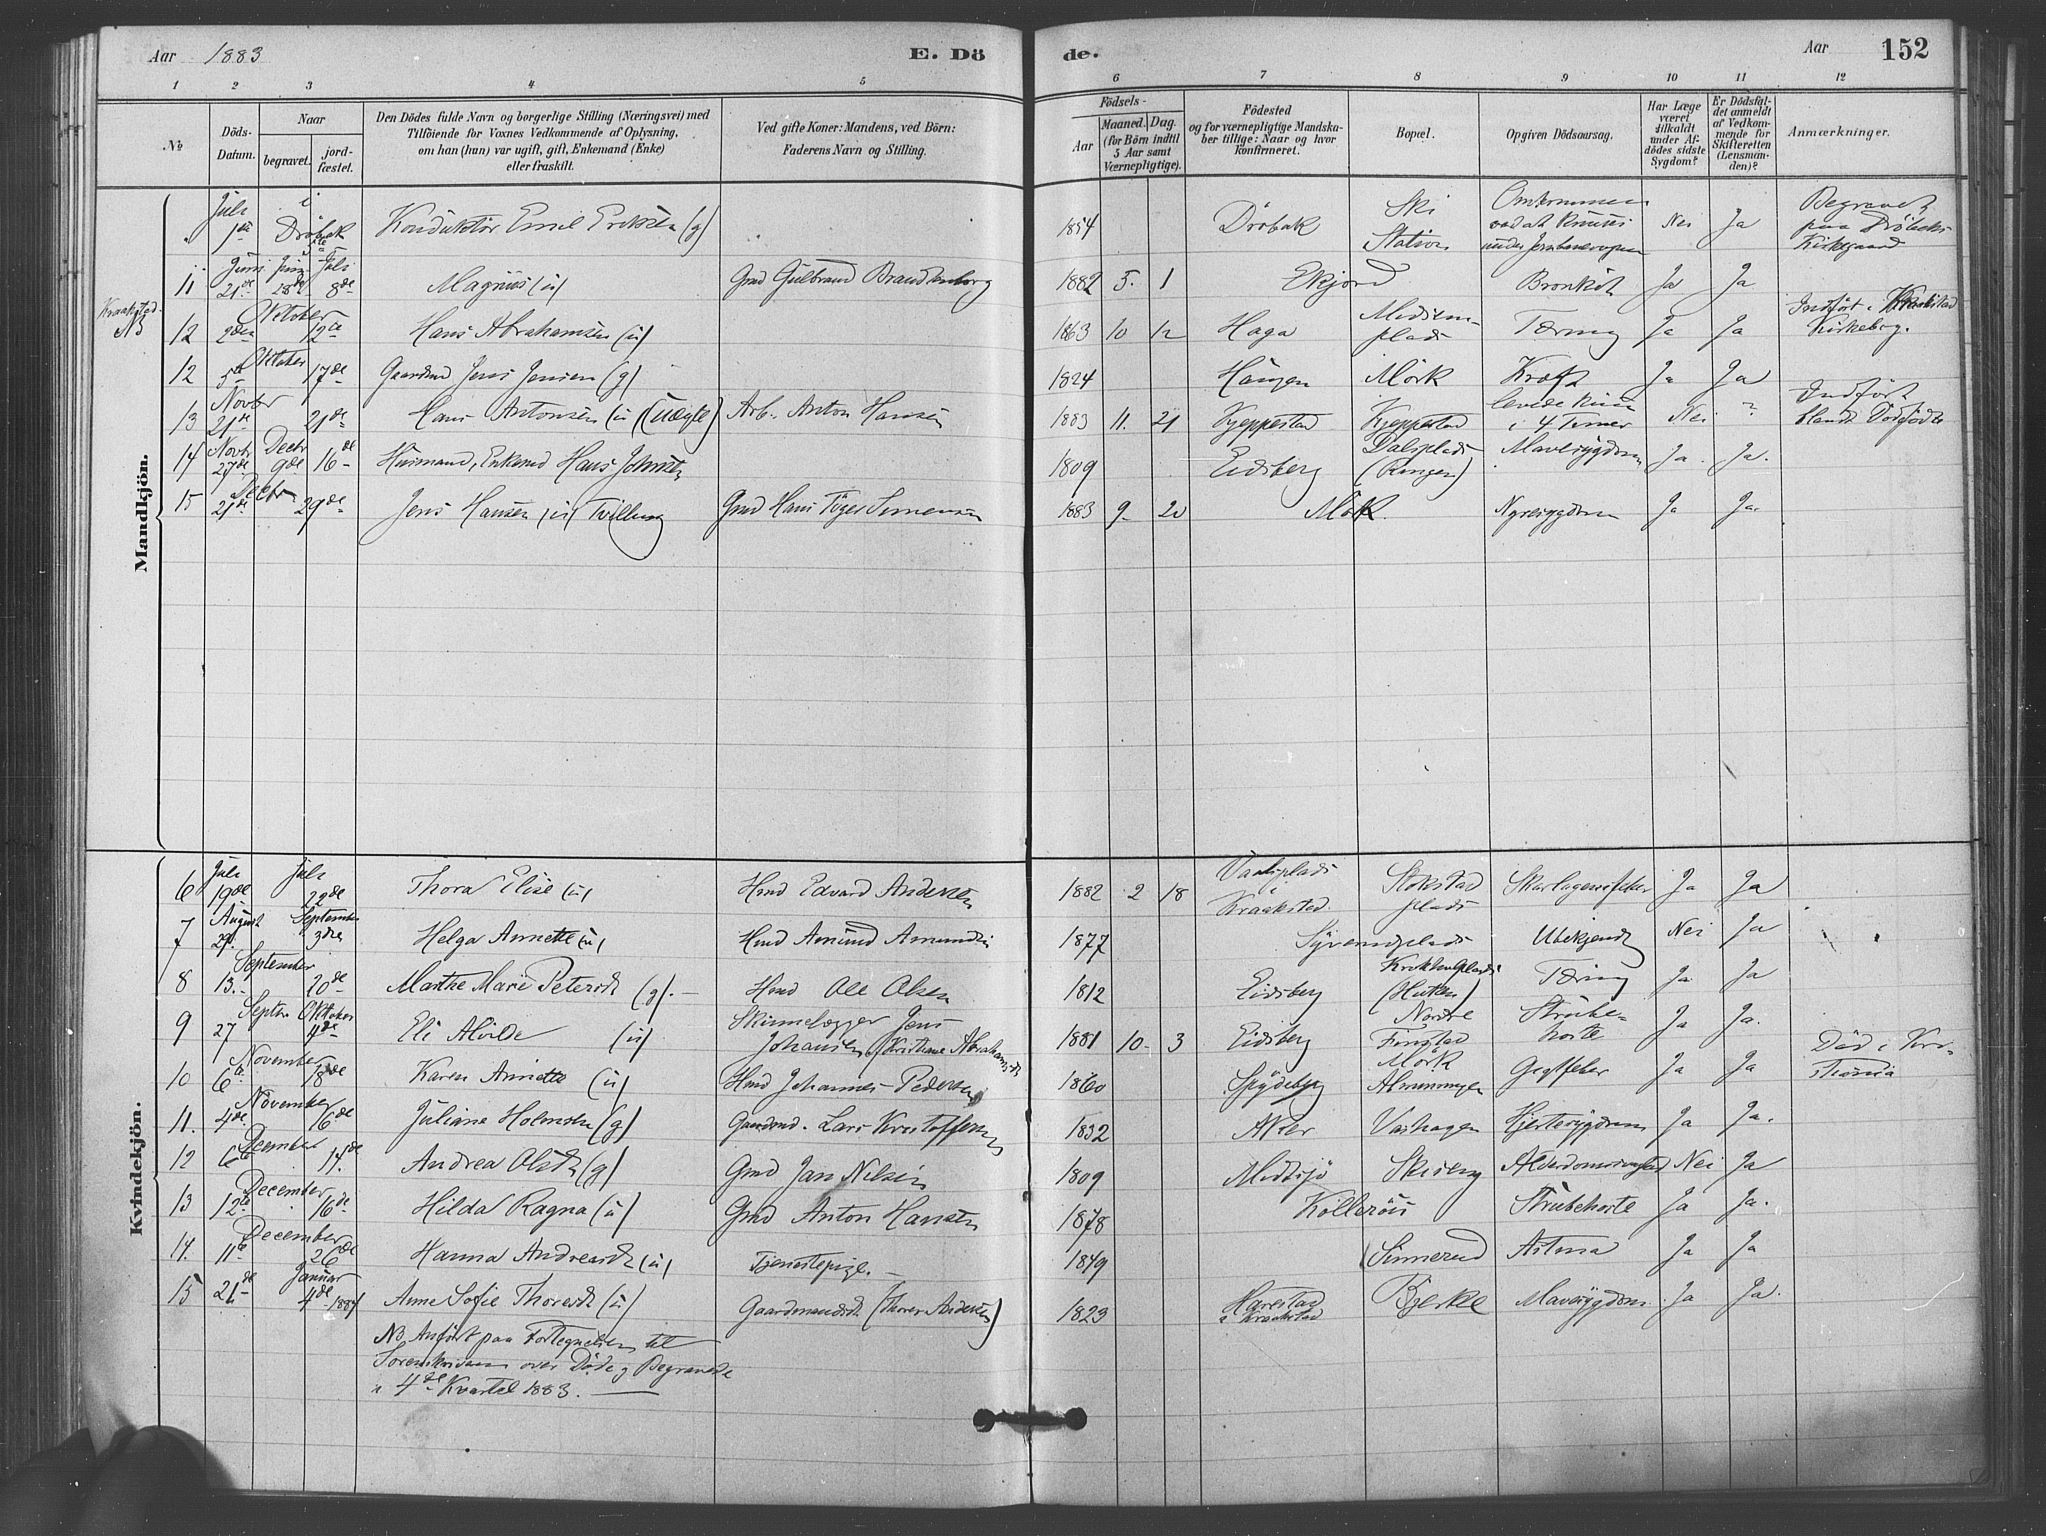 Aar 1883 E. Dö
de. Aar 152
1 2 3 4 5 6 7 8 9 10 11 12
No
Döds-Datum.
Naar
begravet.
jord-fæstet.
Den Dödes fulde Navn og borgerlige Stilling (Næringsvei) med
Tilföiende for Voxnes Vedkommende af Oplysning,
om han (hun) var ugift, gift, Enkemand (Enke)
eller fraskilt.
Ved gifte Koner: Mandens, ved Börn:
Faderens Navn og Stilling.
Födsels-
Aar
Maaned. Dag.
(for Börn indtil
5 Aar samt
Værnepligtige).
Födested
og for værnepligtige Mandska-
ber tillige: Naar og hvor
konfirmeret.
Bopæl.
Opgiven Dödsaarsag.
Har Læge
været
tilkaldt
under Af-
dödes sidste
Sygdom?
Er Dödsfal-
det anmeldt
af Vedkom-
mende for
Skifteretten
(Lensman-
den)?
Anmærkninger.
Mandkjön.
Juli 1ste i Dröbak Konduktör Emil Eriksen (g) 1854 Dröbak Ski Station Omkommen under Jernbanevogn Nei Ja Begravet paa Dröbaks Kirkegaard
11 Juni 21de Juni 28de Juli 8de Magnus (u) Gmd Gulbrand Brandenborg 1882 5. 1 Ekjord Bronkit Ja Ja
Kraakstad NB 12 Oktober 2den 12te Hans Abrahamsen (u) 1863 10 12 Haga plads Tæring Ja Ja Indfört i Kraakstad Kirkebog.
12 Oktober 5te 17de Gaardmd Jens Jensen (g) 1824 Haugen Mörk Kræft Ja Ja
13 Novbr 21de 21de Hans Antonsen (u) (Uægte) Arb. Anton Hansen 1883 11. 21 Kjeppestad Kjeppestad levede kun i 4 Timer Nei ? Indfört blandt Dödfödte
14 Novbr 27de Decbr 9de 16de Husmand, Enkemd Hans Johnsen 1809 Eidsberg Dalsplads (Rangen) Mavesygdom Ja. Ja.
15 Decbr 21de 29de Jens Hansen (u) Tvilling Gmd Hans Simensen 1883 9 20 Mörk. Ja Ja.
Kvindekjön.
6 Juli 19de Juli 22de Thora Elise (u) Hmd Edvard Andersen 1882 2 18 i Kraakstad. Stokstad plads Skarlagensfeber Ja Ja
7 August 29. September 3die Helga Annette (u) Hmd Amund Amundsen 1877 Ubekjendt Nei Ja
8 September 13. 20de Marthe Marie Petersdt (g). Hmd Ole Olsen 1812 Eidsberg (Hutten) Tæring Ja Ja
9 Septbr. 27 Oktober 4de Eli Alvilde (u) Skinnelægger Jens Johansen, Kristiane Abrahamsdt 1881 10 3 Eidsberg Nordre Finstad Strubehoste Ja Ja.
10 November 6te 18de Karen Annette (u) Hmd Johannes Pedersen 1860 Spydeberg Mörk Almenningen Gigtfeber Ja Ja Död i Kristiania
11. November 4de 16de Juliane Holmsen (g) Gaardmd. Lars Kristoffersen 1832 Aker Vashagen Hjertesygdom Ja Ja.
12 December 6te 17de Andrea Olsdt (g) Gmd Jan Nilsen 1809 Midtsjö Skiveng Nei Ja
13 December 12te 16de Hilda Ragna (u) Gmd Anton Hansen 1878 Kolleröis Strubehoste Ja Ja.
14. December 11te 26de Hanna Andreasdt (u) Tjenestepige. 1849 Sinnerud Astma Ja Ja
15 21de Januar 4de 1884 Anne Sofie Thoresdt (u) Gaardmandsdt. (Thore Andersen) 1823 Harestad i Kraakstad Bjerke Mavesygdom. Ja Ja.
NB Anfört paa Fortegnelsen til
Sorenskriveren over Döde og Begravede
i 4de Kvartal 1883.